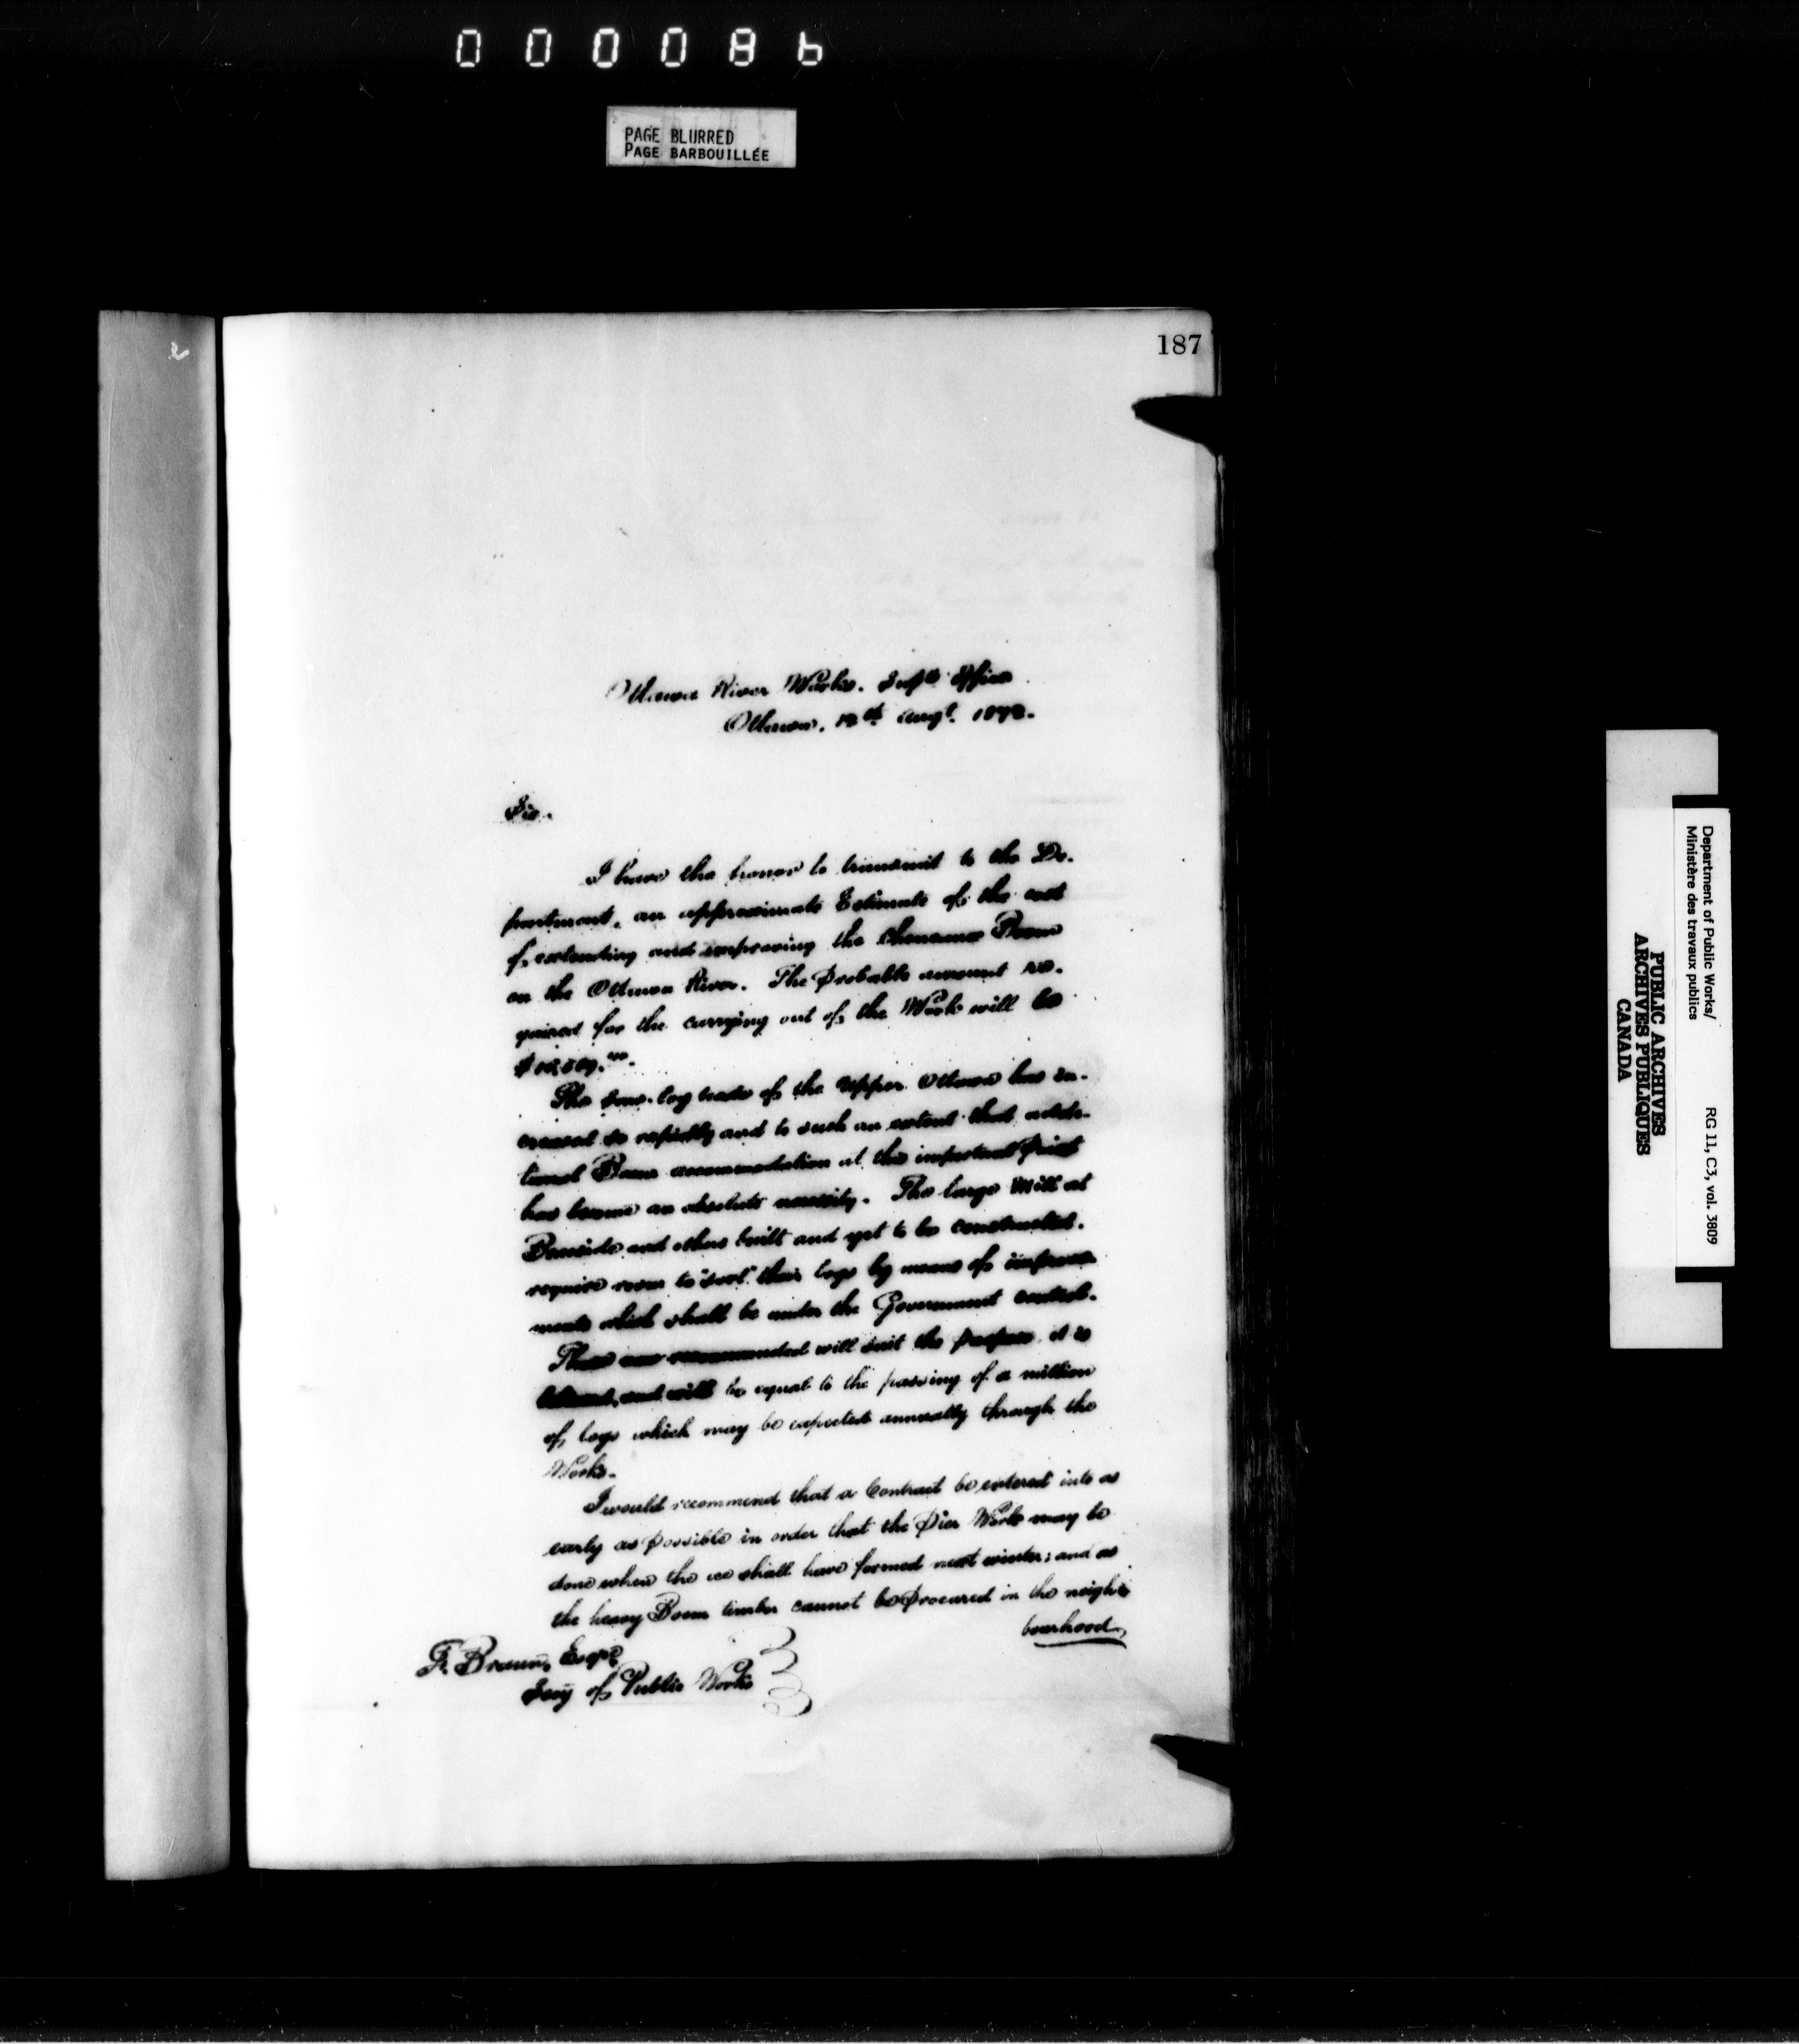 000086
PAGE BLURRED
PAGE BARBOUILLÉE
187
Ottawa River Works. Supts Office
Ottawa, 12th Augt. 1872.
Sir.
I have the honor to transmit to the De-
partment, an approximate Estimate of the cost
of extending and improving the Chenaux Boom
on the Ottawa River. The Probable amount re-
quired for the carrying out of the Work will be
$
The Saw-log trade of the Upper Ottawa has in-
creased so rapidly and to such an extent that addi-
tional Boom accommodation at this important point
has become an absolute necessity. The large Mill at
Braeside and others built and yet to be constructed.
require room to "sort" their logs by means of improve-
ments which shall be under the Government control.
Those now recommended will suit the purpose it is
believed, and will be equal to the passing of a million
of logs which may be expected annually through the
Works.
I would recommend that a Contract be entered into as
early as Possible in order that the Pier Work may be
done when the ice shall have formed next winter; and as
the heavy Boom timber cannot be Procured in the neigh-
bourhood,
F. Braun, Esqre
Secy of Public Works
Department of Public Works/
Ministère des travaux publics
RG 11, C3, vol. 3809
PUBLIC ARCHIVES
ARCHIVES PUBLIQUES
CANADA